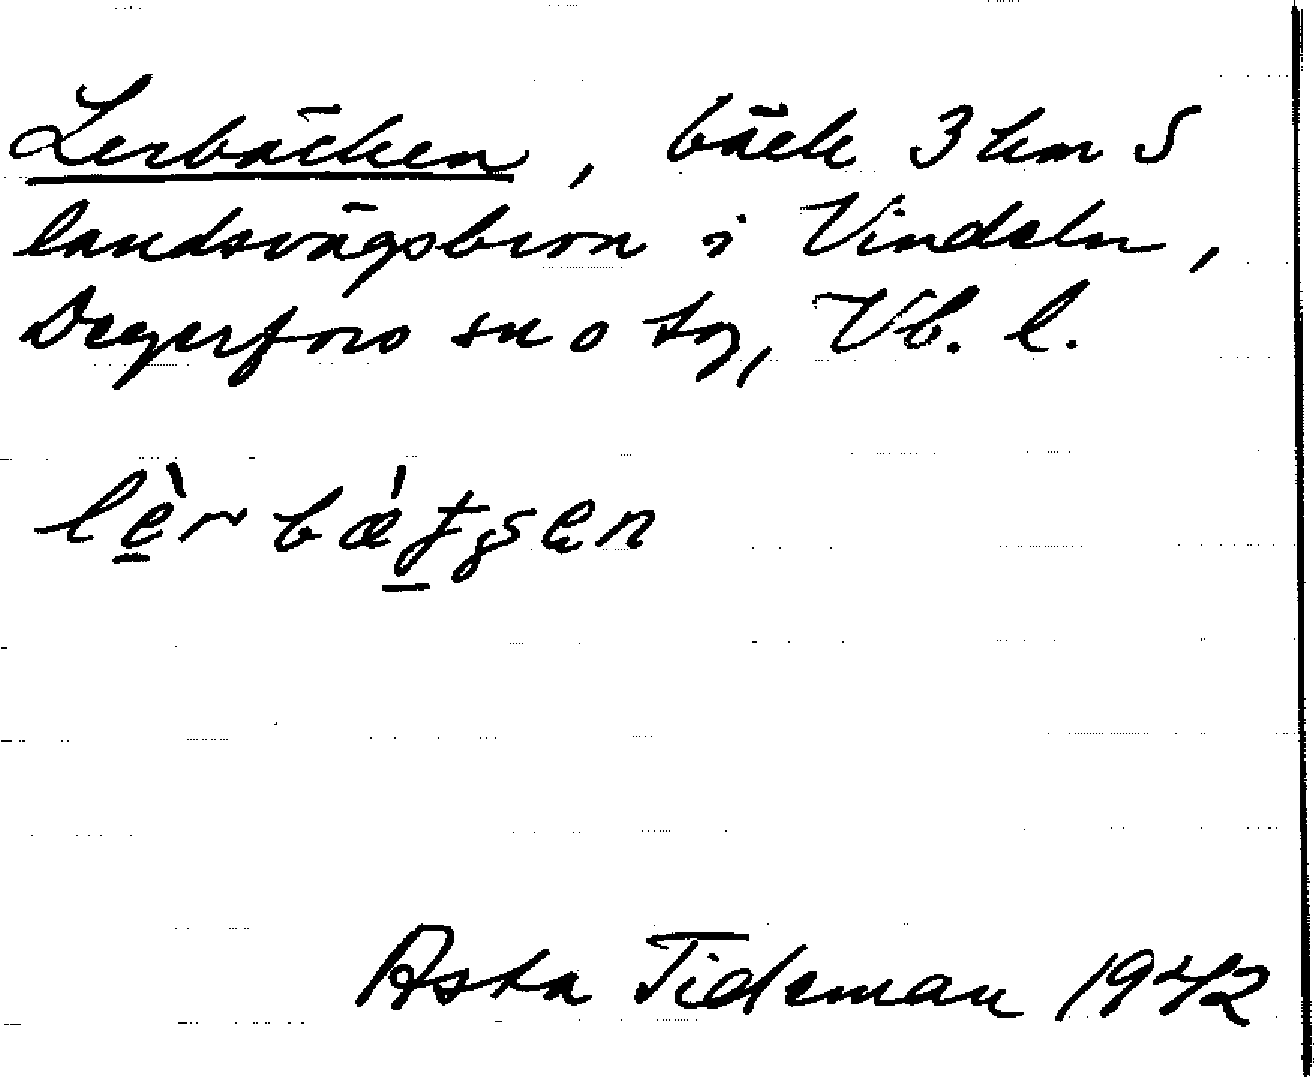 Lerbäcken, bäck 3 km S
landsvägsbron i Vindeln,
Degerfors sn o tg, Vb. l.
lèrbǽtsen
Asta Tideman 1942